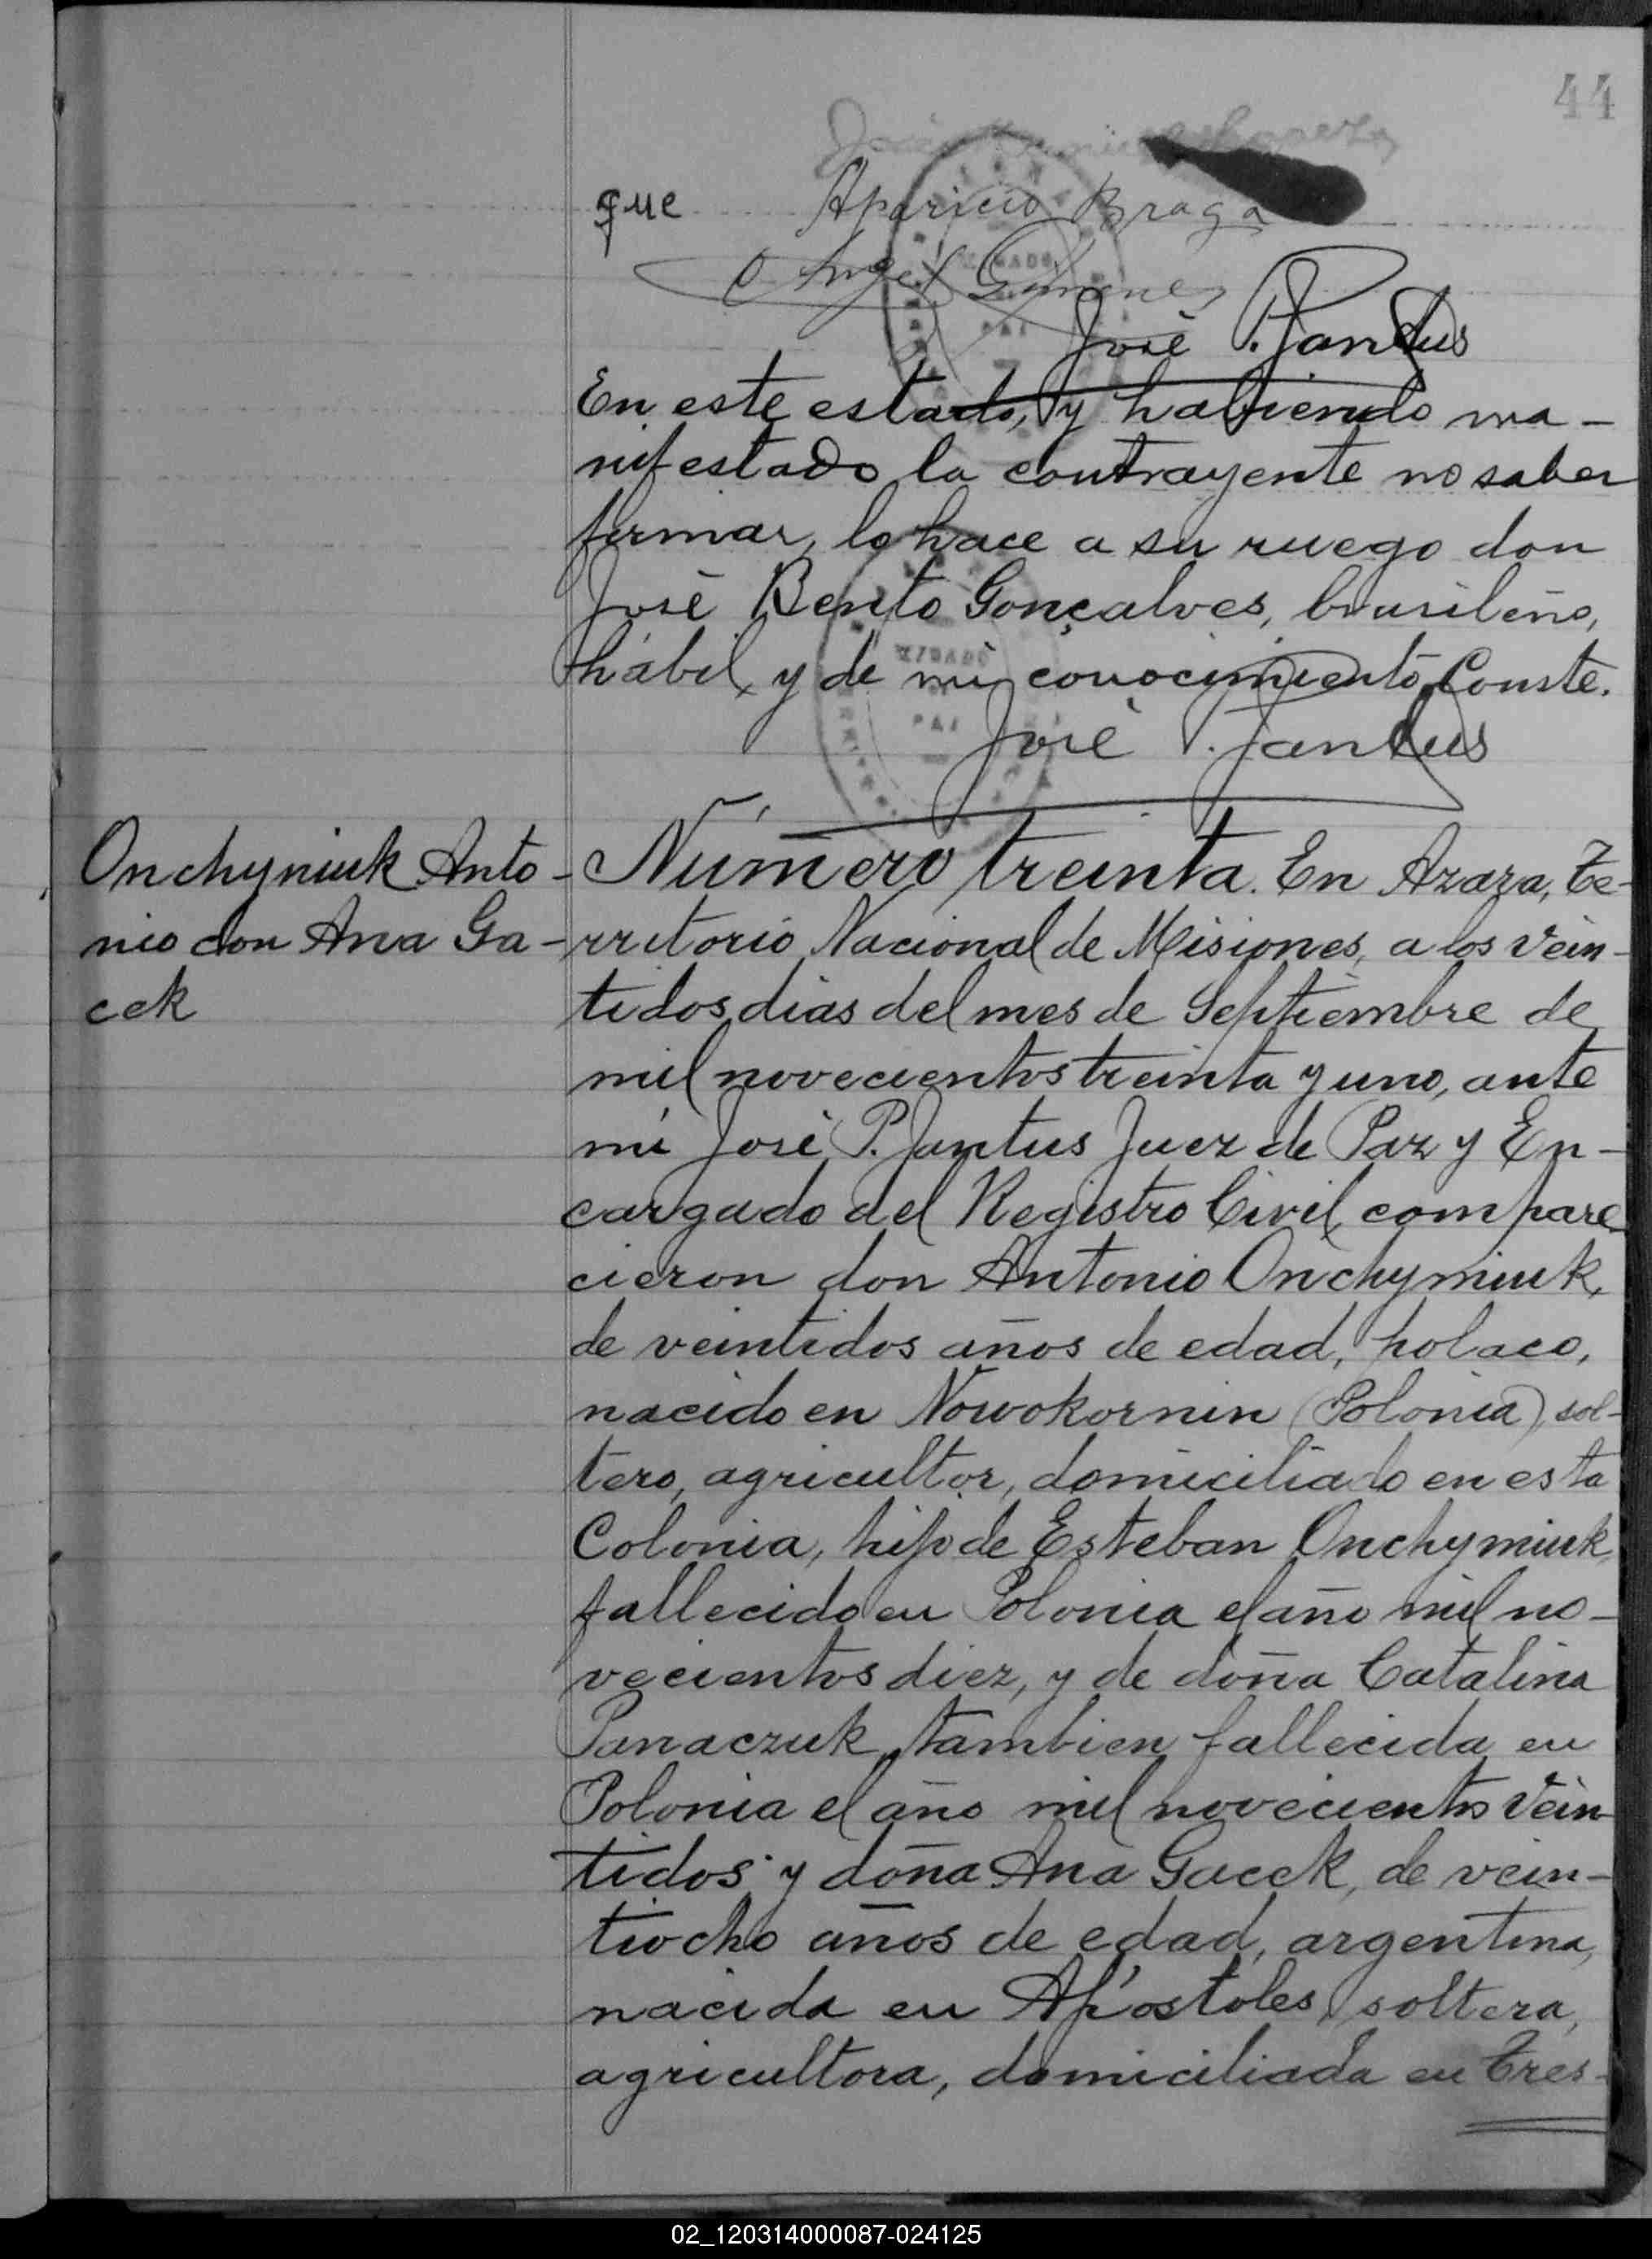 44
que Aparicio Braga
Angel Gimenez
José P. Jantus
En este estado, y habiendo ma-
nifestado la contrayente no saber
firmar, lo hace a su ruego don
José Bento Gonçalves, brasileño,
hábil y de mi conocimiento. Conste.
José P. Jantus
Onchymiuk Anto-
nio con Ana Ga-
cek
Número treinta. En Azara, Te-
rritorio Nacional de Misiones, a los vein-
tidos dias del mes de Septiembre de
mil novecientos treinta y uno, ante
mi José P. Jantus Juez de Paz y En-
cargado del Registro Civil, compare-
cieron don Antonio Onchymiuk,
de veintidos años de edad, polaco,
nacido en Nowokornin (Polonia), sol-
tero, agricultor, domiciliado en esta
Colonia, hijo de Esteban Onchymiuk,
fallecido en Polonia el año mil no-
vecientos diez, y de doña Catalina
Panaczuk, tambien fallecida en
Polonia el año mil novecientos vein
tidos y doña Ana Gacek, de vein-
tiocho años de edad, argentina,
nacida en Apóstoles, soltera,
agricultora, domiciliada en Tres-
02_120314000087-024125